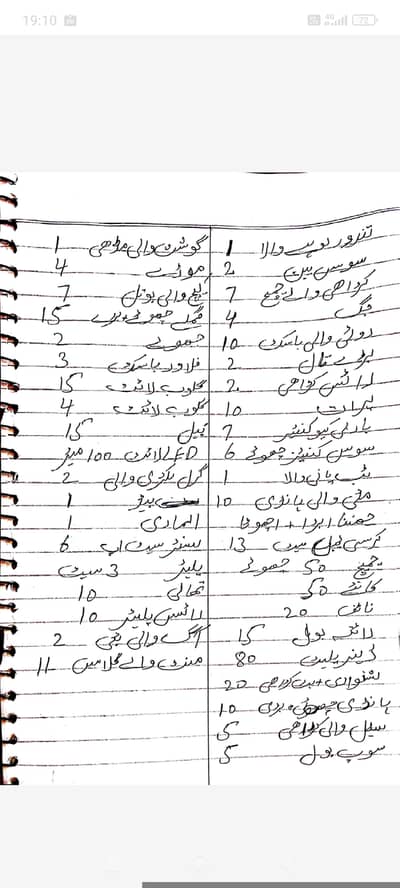 19:10
72
تندور لوہے والا 1
سوس پین 2
کڑاھی والے چمچ 7
جگ 4
روٹی والی باسکٹ 10
بڑے تھال 2
کڑاھی 2
10
7
سوس چھوٹے 6
ٹب پانی والا 1
مٹی والی ہانڈی 10
چھوٹا
کرسی ٹیبل سیٹ 13
چمچ 50 چھوٹے
کانٹے 50
نائف 20
رائتہ بول 15
ڈینر پلیٹ 80
20
ہانڈی چھوٹی بڑی 10
سٹیل والی کڑاھی 5
سوپ بول 5
گوشت والی مڈھی 1
موڑے 4
کیچپ والی بوتل 7
گملے چھوٹے بڑے 15
جھولے 2
فلاور باسکٹ 3
گلوب لائٹ 15
گلوب لائٹ 4
کیبل 15
LED لائٹ 100 میٹر
گرل لکڑی والی 2
بینر 1
الماری 1
سنٹر سیٹ اپ 6
پلیٹر 3 سیٹ
تھالی 10
رائس پلیٹر 10
آگ والی بھٹی 2
گلاس 11